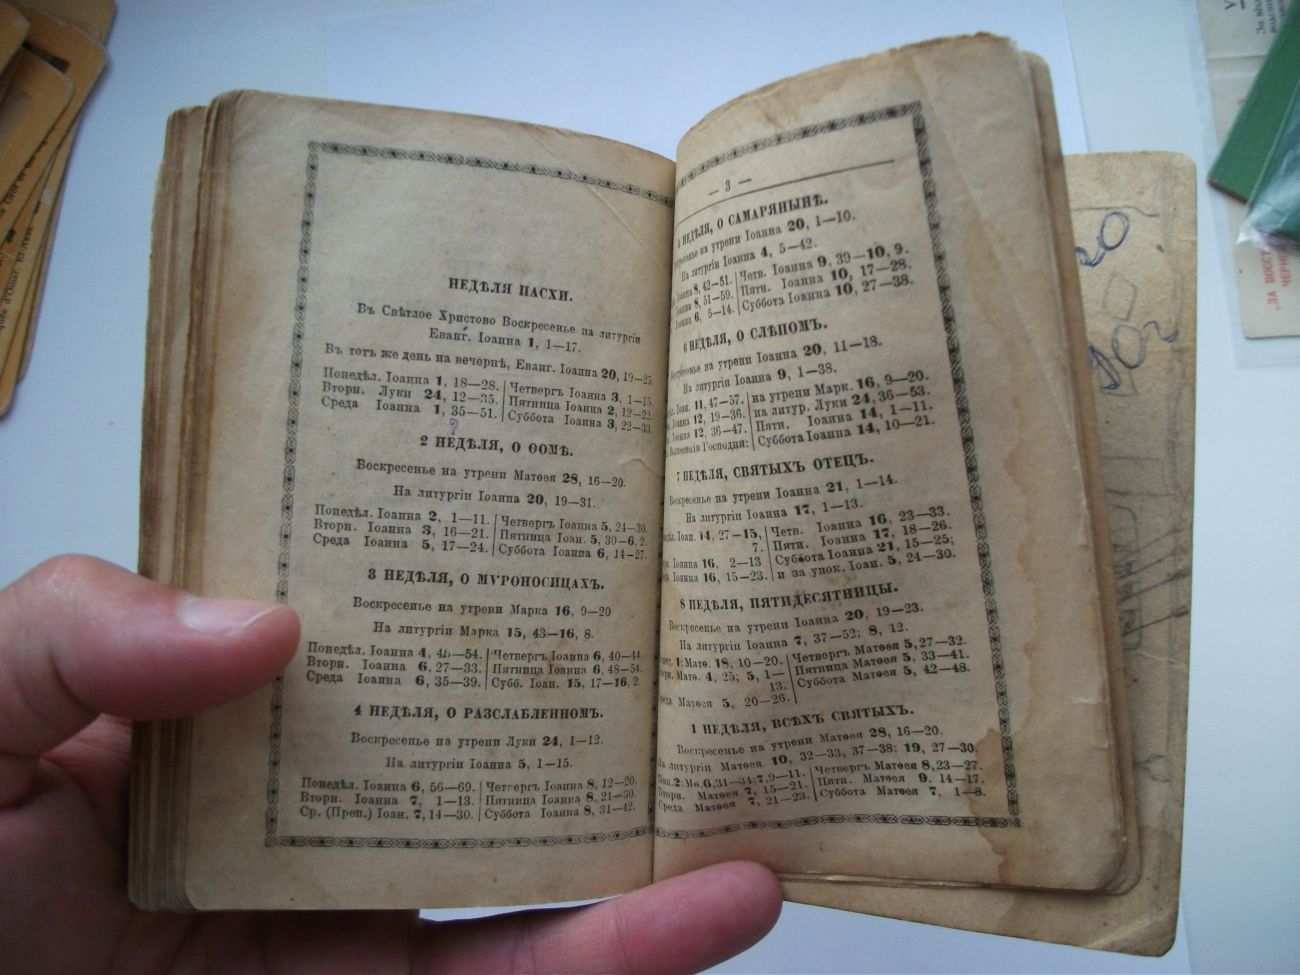 НЕДѢЛЯ ПАСХИ.
Въ Свѣтлое Христово Воскресенье на литургіи
Еванг. Іоанна 1, 1—17.
Въ тотъ же день на вечернѣ, Еванг. Іоанна 20, 19—25.
Понедѣл. Іоанна 1, 18—28. Четвергъ Іоанна 3, 1—15.
Вторн. Луки 24, 12—35. Пятница Іоанна 2, 12—22.
Среда Іоанна 1, 35—51. Суббота Іоанна 3, 22—33.
2 НЕДѢЛЯ, О ѲОМѢ.
Воскресенье на утрени Матѳея 28, 16—20.
На литургіи Іоанна 20, 19—31.
Понедѣл. Іоанна 2, 1—11. Четвергъ Іоанна 5, 24—30.
Вторн. Іоанна 3, 16—21. Пятница Іоан. 5, 30—6, 2.
Среда Іоанна 5, 17—24. Суббота Іоанна 6, 14—27.
3 НЕДѢЛЯ, О МѴРОНОСИЦАХЪ.
Воскресенье на утрени Марка 16, 9—20
На литургіи Марка 15, 43—16, 8.
Понедѣл. Іоанна 4, 46—54. Четвергъ Іоанна 6, 40—44.
Вторн. Іоанна 6, 27—33. Пятница Іоанна 6, 48—54.
Среда Іоанна 6, 35—39. Субб. Іоан. 15, 17—16, 2.
4 НЕДѢЛЯ, О РАЗСЛАБЛЕННОМЪ.
Воскресенье на утрени Луки 24, 1—12.
На литургіи Іоанна 5, 1—15.
Понедѣл. Іоанна 6, 56—69. Четвергъ Іоанна 8, 12—20.
Вторн. Іоанна 7, 1—13. Пятница Іоанна 8, 21—30.
Ср. (Преп.) Іоан. 7, 14—30. Суббота Іоанна 8, 31—42.
— 3 —
5 НЕДѢЛЯ, О САМАРЯНЫНѢ.
на утрени Іоанна 20, 1—10.
На литургіи Іоанна 4, 5—42.
Іоанна 8, 42—51. Четв. Іоанна 9, 39—10, 9.
Іоанна 8, 51—59. Пятн. Іоанна 10, 17—28.
Іоанна 6, 5—14. Суббота Іоанна 10, 27—38.
6 НЕДѢЛЯ, О СЛѢПОМЪ.
на утрени Іоанна 20, 11—18.
На литургіи Іоанна 9, 1—38.
Іоан. 11, 47—57. на утрени Марк. 16, 9—20.
Іоанна 12, 19—36. на литур. Луки 24, 36—53.
Іоанна 12, 36—47. Пятн. Іоанна 14, 1—11.
Господня: Суббота Іоанна 14, 10—21.
7 НЕДѢЛЯ, СВЯТЫХЪ ОТЕЦЪ.
Воскресенье на утрени Іоанна 21, 1—14.
На литургіи Іоанна 17, 1—13.
Іоан. 14, 27—15, Четв. Іоанна 16, 23—33.
7. Пятн. Іоанна 17, 18—26.
Іоанна 16, 2—13 Суббота Іоанна 21, 15—25;
Іоанна 16, 15—23. и за упок. Іоан. 5, 24—30.
8 НЕДѢЛЯ, ПЯТИДЕСЯТНИЦЫ.
на утрени Іоанна 20, 19—23.
На литургіи Іоанна 7, 37—52; 8, 12.
1: Матѳ. 18, 10—20. Четвергъ Матѳея 5, 27—32.
Матѳ. 4, 25; 5, 1— Пятница Матѳея 5, 33—41.
13. Суббота Матѳея 5, 42—48.
Матѳея 5, 20—26.
1 НЕДѢЛЯ, ВСѢХЪ СВЯТЫХЪ.
Воскресенье на утрени Матѳея 28, 16—20.
На литургіи Матѳея 10, 32—33, 37—38; 19, 27—30.
2: Мѳ. 6, 31—34; 7, 9—11. Четвергъ Матѳея 8, 23—27.
Вторн. Матѳея 7, 15—21. Пятн. Матѳея 9. 14—17.
Среда Матѳея 7, 21—23. Суббота Матѳея 7, 1—8.